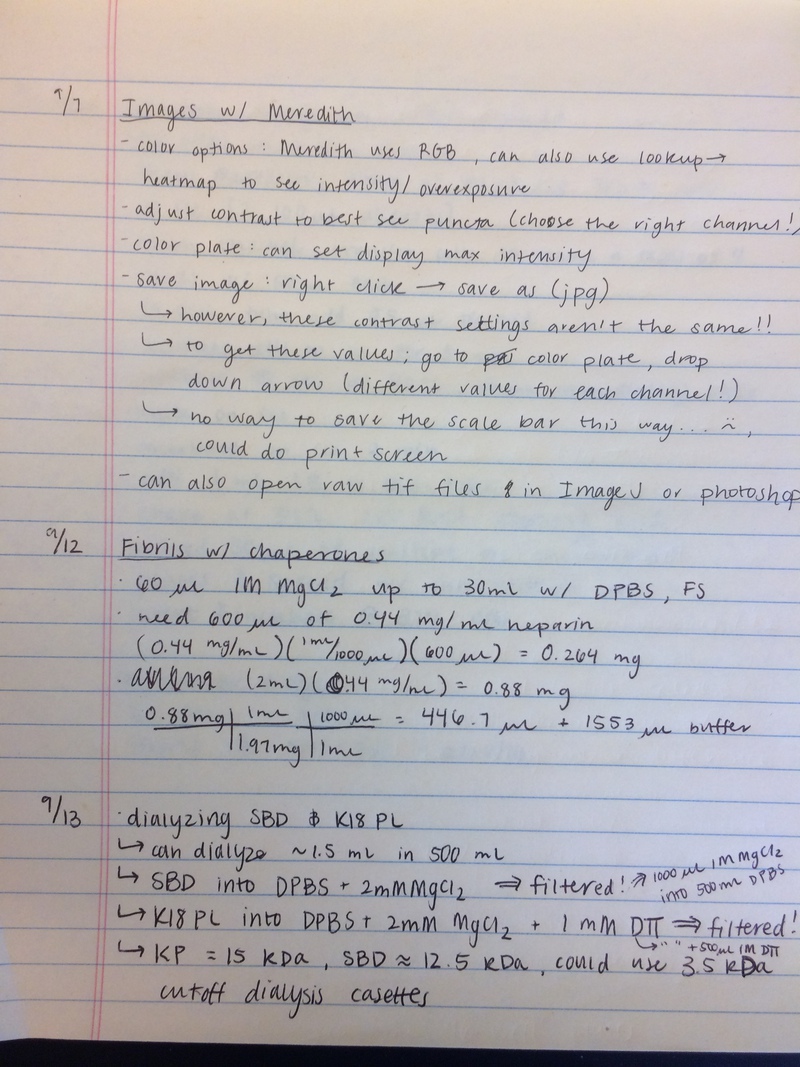 9/7 Images w/ Meredith
- color options : Meredith uses RGB , can also use lookup →
heatmap to see intensity/overexposure
- adjust contrast to best see puncta (choose the right channel!)
- color plate : can set display max intensity
- save image : right click → save as (jpg)
↳ however, these contrast settings aren't the same!!
↳ to get these values; go to color plate, drop
down arrow (different values for each channel!)
↳ no way to save the scale bar this way... ,
could do print screen
- can also open raw tif files in ImageJ or photoshop
9/12 Fibrils w/ chaperones
· 60 µL 1M MgCl2 up to 30ml w/ DPBS, FS
· need 600 µL of 0.44 mg/mL heparin
(0.44 mg/mL)(1mL/1000 µL)(600 µL) = 0.264 mg
· (2mL)(0.44 mg/mL) = 0.88 mg
0.88mg | 1mL | 1000 µL = 446.7 µL + 1553 µL buffer
| 1.97mg | 1mL
9/13 · dialyzing SBD & K18 PL
↳ can dialyze ~1.5 mL in 500 mL
↳ SBD into DPBS + 2mM MgCl2 ⇒ filtered! ↗ 1000 µL 1M MgCl2
into 500mL DPBS
↳ K18 PL into DPBS + 2mM MgCl2 + 1mM DTT ⇒ filtered!
↳ " " + 500µL 1M DTT
↳ KP = 15 kDa, SBD ≈ 12.5 kDa, could use 3.5 kDa
cutoff dialysis casettes